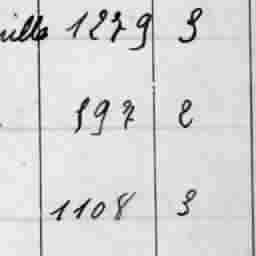 ville 1279 3
597 2
1108 3